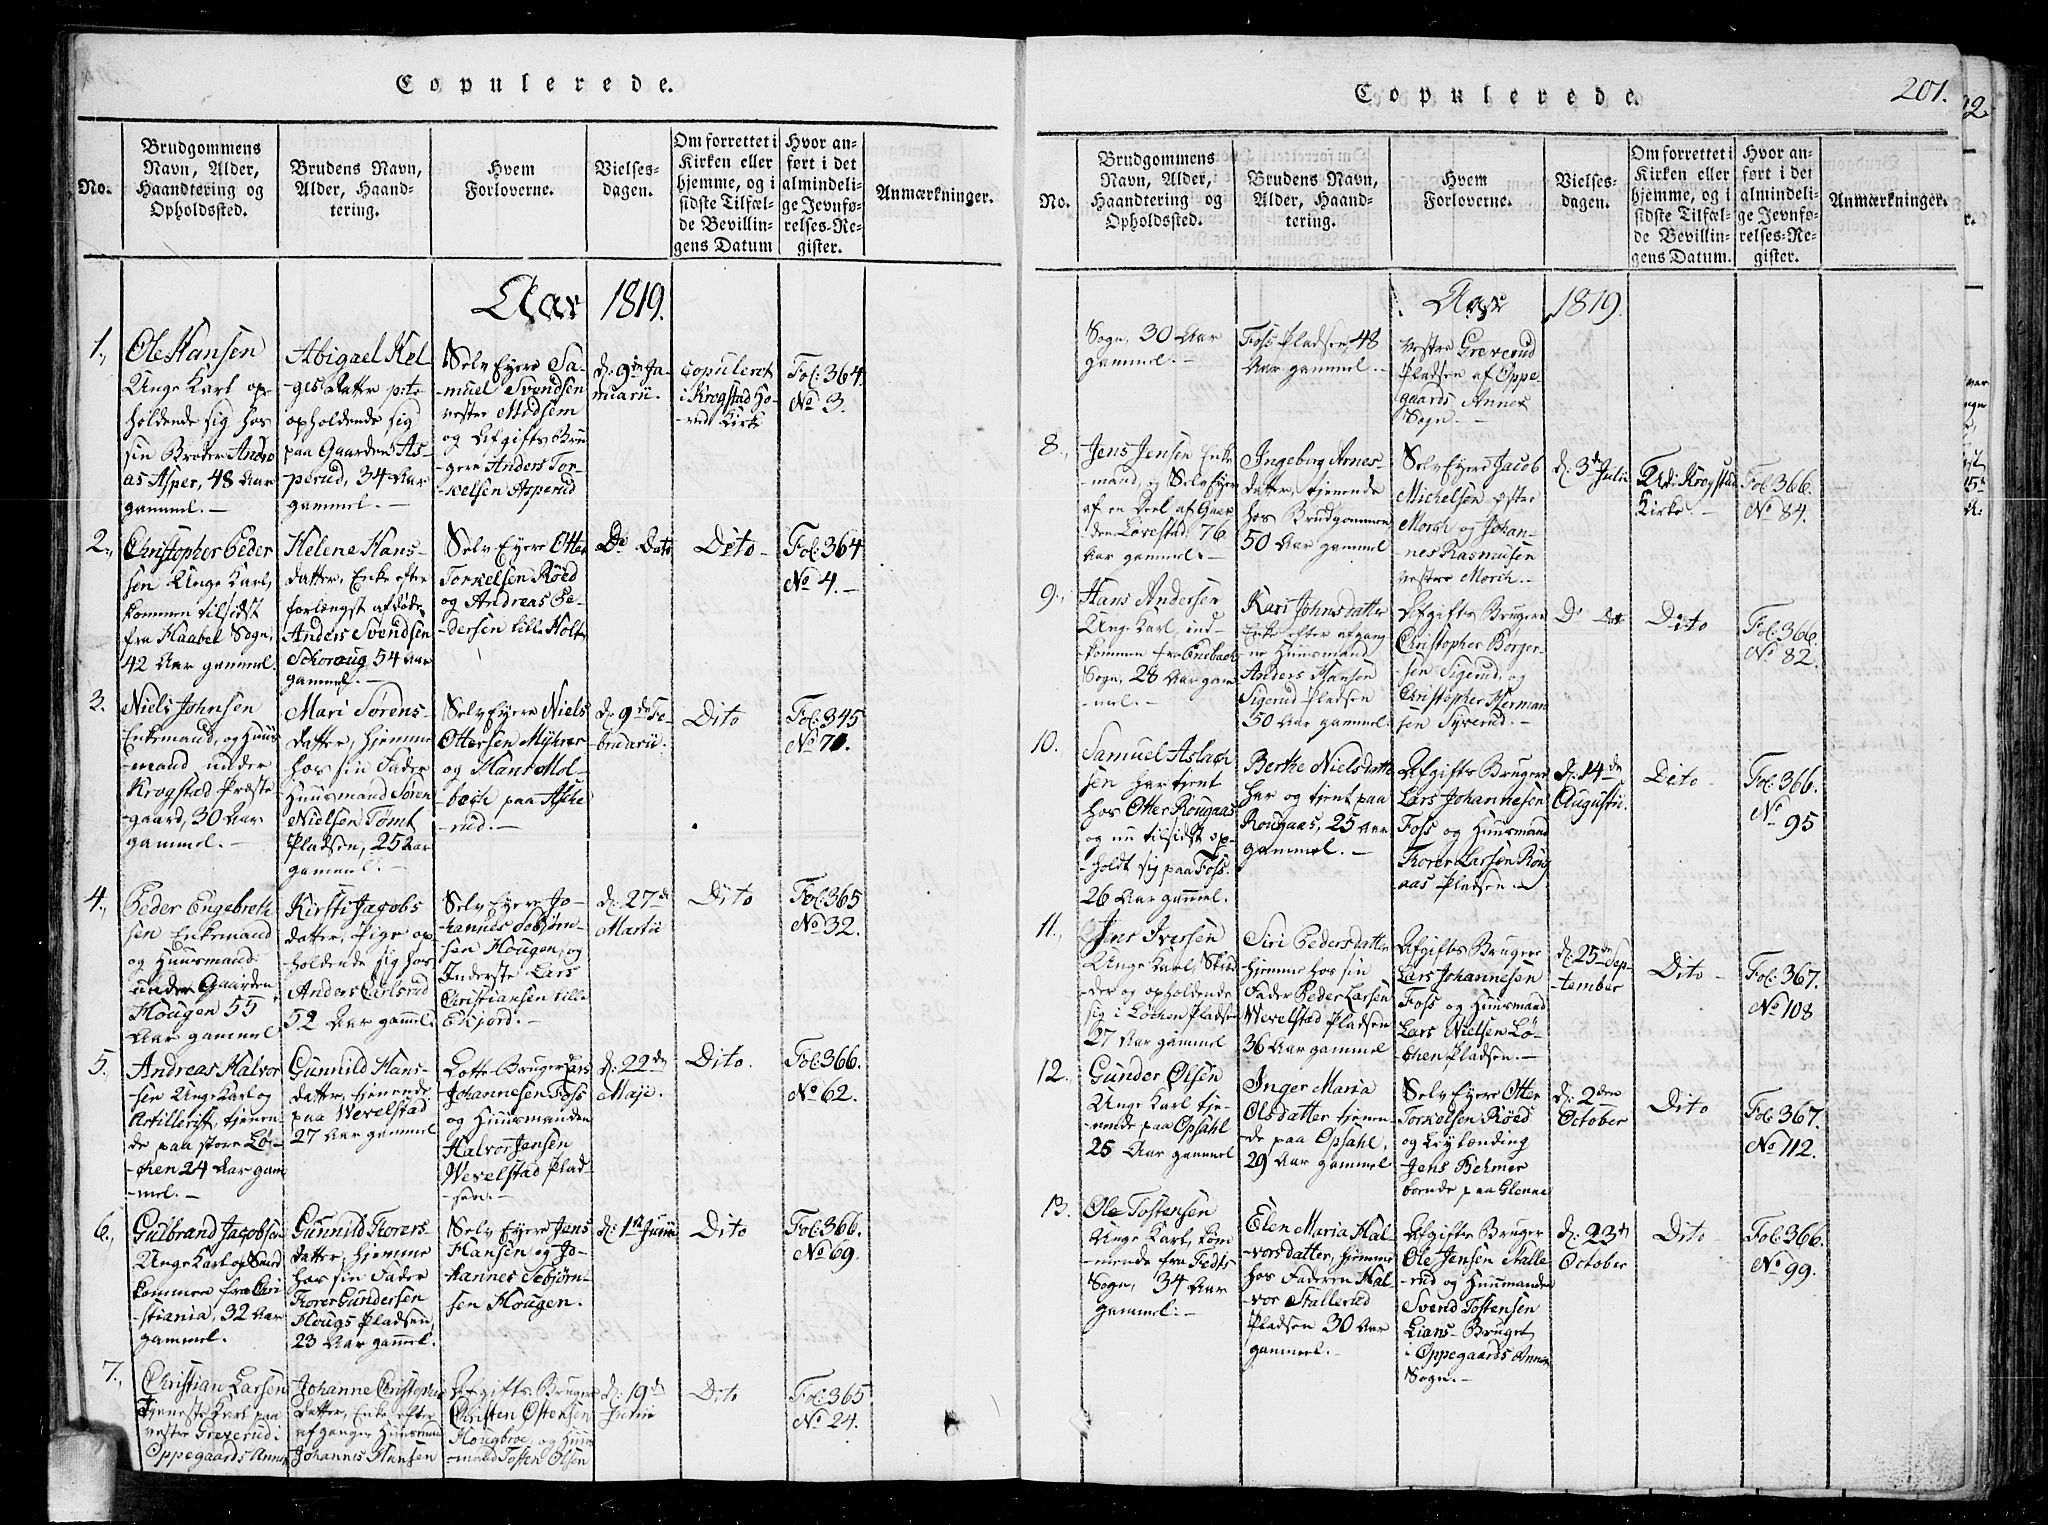 Copulerede.
No.
Brudgommens
Navn, Alder,
Haandtering og
Opholdssted.
Brudens Navn,
Alder, Haand-
tering.
Hvem
Forloverne.
Vielses-
dagen.
Om forrettet i
Kirken eller
hjemme, og i
sidste Tilfæl-
de Bevillin-
gens Datum
Hvor an-
ført i det
almindeli-
ge Jevnfø-
relses-Re-
gister.
Anmærkninger.
Aar 1819.
1.,
Ole Hansen
Unge Karl op-
holdende sig hos
sin Broder Andre
as Asper, 48 Aar
gammel. -
Abigael Hel
-ges datter p:t:
opholdende sig
paa Gaarden As-
perud, 34 Aar
gammel. -
Selv Eyere Sa-
muel Svendsen
vestre Midsem
og Afgifts Bru
gere Anders Tor-
-kelsen Asperud
d: 9de Ja-
nuarii.
Copuleret
i Krogstad Ho-
-ved Kirke
Fol: 364.
No 3.
2.,
Christopher Peder
sen Unge Karl,
kommen tilsidst
fra Haabel Sogn,
42 Aar gammel.
Helene Hans-
datter, Enke efter
forlængst afdøde
Anders Svendsen
Schoraug 54 aar
gammel. -
Selv Eyere Otter
Torkelsen Röed
og Andreas Pe-
-dersen lille Holt
Do Dato
Dito -
Fol: 364
No 4. -
3.
Niels Johnsen
Enkemand, og Huus
-mand under
Krogstad Præste
-gaard, 30 Aar
gammel. -
Mari Sørens-
datter, hjemme
hos sin Fader
Huusmand Søren
Nielsen Tømt
Pladsen, 25 Aar
gammel. -
Selv Eyere Niels
Ottersen Myhrer
og Hans Mol-
-bech paa Asche
-rud. -
d: 9de Fe-
bruarii.
Dito
Fol: 345
No 71.
4.,
Peder Engebreth
sen Enkemand
og Huusmand
under Gaarden
Hougen 55
Aar gammel
Kirsti Jacobs
datter, Pige op-
holdende sig hos
Anders Carlsrud
52 Aar gammel.
Selv Eyere Jo-
hannes Sebjørn-
sen Hougen, og
Inderste Lars
Christiansen lille
Ekjord. -
d: 27de
Martii
Dito
Fol: 365
No 32.
5.
Andreas Halvor
sen Unge Karl og
Artillerist, tjenen
de paa store Lø-
-chen 24 Aar gam
-mel. -
Gunnild Hans-
datter, tjenende
paa Wevelstad
27 Aar gammel
Lotte Bruger Lars
Johannesen Foss
og Huusmanden
Halvor Jensen
Wevelstad Plad-
-sen. -
d: 22de
Maje.
Dito.
Fol: 366.
No 62.
6.,
Gulbrand Jacobsen
Unge Karl og Soud
kommen fra Chri
-stiania, 32 Aar
gammel.
Gunnild Thorers-
datter, hjemme
hos sin Fader
Thorer Gundersen
Hougs Pladsen,
23 Aar gammel.
Selv Eyere Jens
Hansen og Jo-
hannes Sebjørn-
sen Hougen.
d: 1ste Junii
Dito
Fol: 366.
No 69.
7.,
Christian Larsen
Tjeneste Karl paa
vestre Greverud i
Oppegaards Annex
Johanne Christophers
datter, Enke efter
afganger Huusmand
Johannes Hansen
Afgifts Bruger
Christen Ostensen
Hougbroe, og Huus
-mand Tosten Olsen
d: 19de
Junii
Dito
Fol: 365
No 24.
Copulerede.
201.
No.
Brudgommens
Navn, Alder,
Haandtering og
Opholdssted.
Brudens Navn,
Alder, Haand-
tering.
Hvem
Forloverne.
Vielses-
dagen.
Om forrettet i
Kirken eller
hjemme, og i
sidste Tilfæl-
de Bevillin-
gens Datum.
Hvor an-
ført i det
almindeli-
ge Jevnfø-
relses-Re-
gister.
Anmærkninger.
Aar 1819.
Sogn, 30 Aar
gammel. -
Foss Pladsen, 48
Aar gammel. -
vestre Greverud
Pladsen af Oppe-
gaards Annex
Sogn. -
8.,
Jens Jensen Enke
-mand, og Selv Eyer
af en Deel af Gaar
den Løvestad, 76
Aar gammel. -
Ingeborg Arnes-
datter, tjenende
hos Brudgommen
50 Aar gammel
Selv Eyere Jacob
Michelsen østre
Morch og Johan-
nes Rasmusen
vestre Morch. -
d: 3de Julii
Udi Krogstad
Kirke -
Fol: 366.
No 84.
9.,
Hans Andersen
Unge Karl, ind-
kommen fra Enebach
Sogn, 28 Aar gam
-mel. -
Kari Johnsdatter
Enke efter afgang
ne Huusmand
Anders Hansen
Sigerud Pladsen
50 Aar gammel.
Afgifts Brugere
Christopher Borger-
sen Sigerud, og
Christopher Herman
sen Syverud. -
Do Dto
Dito
Fol: 366.
No 82.
10.
Samuel Aslach
sen har tjent
hos Otter Rougaas
og nu tilsidst op-
-holdt sig paa Foss.
26 Aar gammel.
Berthe Nielsdatter
har og tjent paa
Rougaas, 25 Aar
gammel. -
Afgifts Brugere
Lars Johannesen
Foss og Huusmand
Thorer Larsen Roug
aas Pladsen. -
d: 14de
Augustii.
Dito -
Fol: 366.
No 95
11.,
Jens Iversen
Unge Karl, Skræd
-der og opholdende
sig i Løchen Pladsen
27 Aar gammel
Siri Pedersdatter
hjemme hos sin
Fader Peder Larsen
Wevelstad Pladsen
36 Aar gammel
Afgifts Bruger
Lars Johannesen
Foss og Huusmand
Lars Nielsen Lø-
chen Pladsen. -
d: 25de Sep-
-tember
Dito -
Fol: 367.
No 108
12.,
Gunder Olsen
Unge Karl tje-
-nende paa Opsahl
25 Aar gammel
Inger Maria
Olsdatter tjenen-
de paa Opsahl,
29 Aar gammel
Selv Eyere Otter
Torkelsen Röed
og Leylænding
Jens Behmer
boende paa Glenne
d: 2den
October
Dito -
Fol: 367.
No 112.
13.
Ole Tostensen
Unge Karl, kom
-mende fra Fedts
Sogn, 34 Aar
gammel. -
Elen Maria Hal-
-vorsdatter, hjemme
hos Faderen Hal-
vor Stallerud
Pladsen 30 Aar
gammel. -
Afgifts Bruger
Ole Jensen Stalle
-rud og Huusmanden
Svend Tostensen
Lians-Bruget,
i Oppegaards Annex
Sogn. -
d: 23de
October
Dito -
Fol: 366.
No 99.